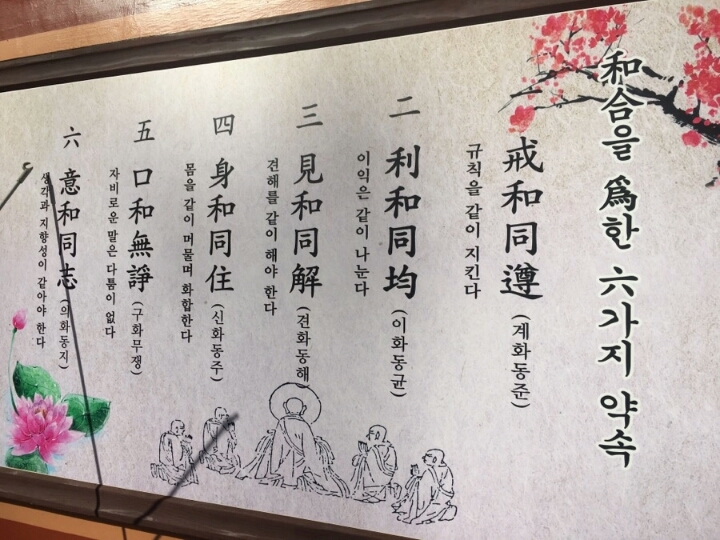 和合을 爲한 六가지 약속
戒和同遵 (계화동준)
규칙을 같이 지킨다
二 利和同均 (이화동균)
이익은 같이 나눈다
三 見和同解 (견화동해)
견해를 같이 해야 한다
四 身和同住 (신화동주)
몸을 같이 머물며 화합한다
五 口和無諍 (구화무쟁)
자비로운 말은 다툼이 없다
六 意和同志 (의화동지)
생각과 지향성이 같아야 한다